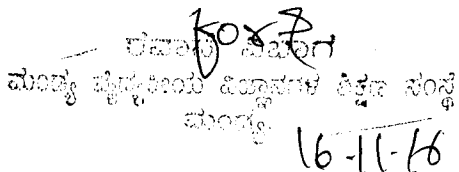 ವಿಭಾಗ
ಮಂಡ್ಯ ವೈದ್ಯಕೀಯ ವಿಜ್ಞಾನಗಳ ಶಿಕ್ಷಣ ಸಂಸ್ಥೆ
ಮಂಡ್ಯ
16-11-16